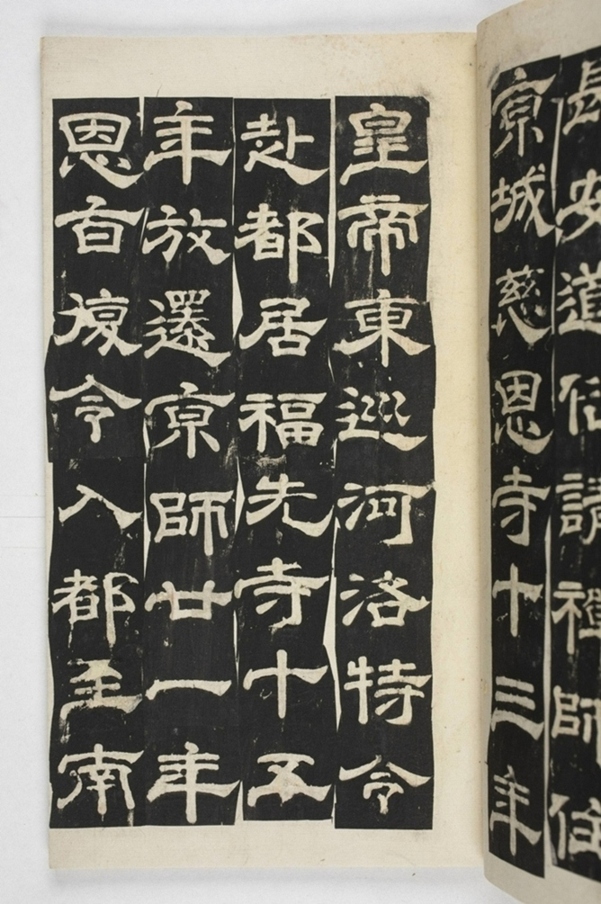 長安道俗請禪師住
京城慈恩寺十三年
皇帝東巡河洛特令
赴都居福先寺十五
年放還京師廿一年
恩旨復令入都至南